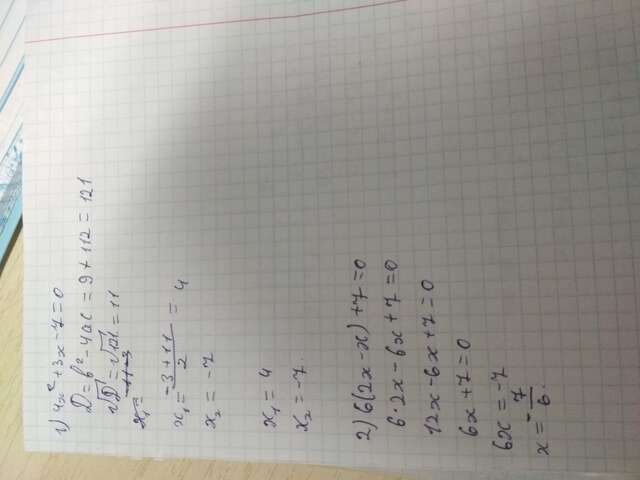 1) 4x² + 3x - 7 = 0
D = b² - 4ac = 9 + 112 = 121
√D = √121 = 11
x₁ = -11-3
x₁ = -3+11/2 = 4
x₂ = -7
x₁ = 4
x₂ = -7.
2) 6(2x-x)+7=0
6·2x-6x+7=0
12x-6x+7=0
6x+7=0
6x=-7
x=-7/6.